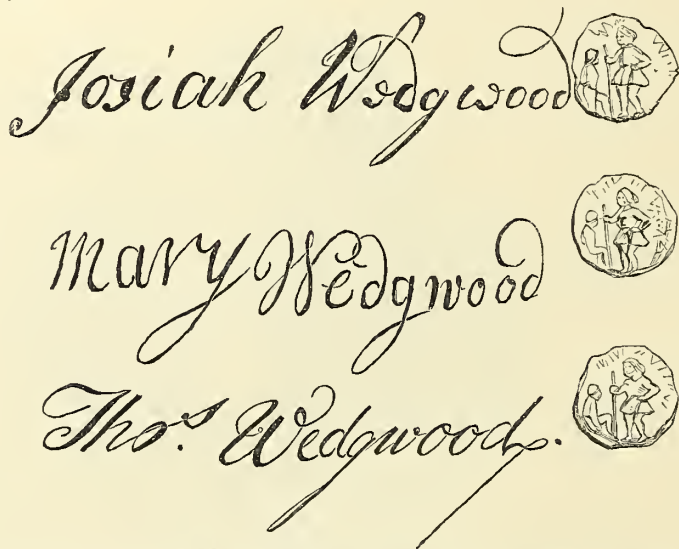 Josiah Wedgwood
Mary Wedgwood
Thos. Wedgwood.